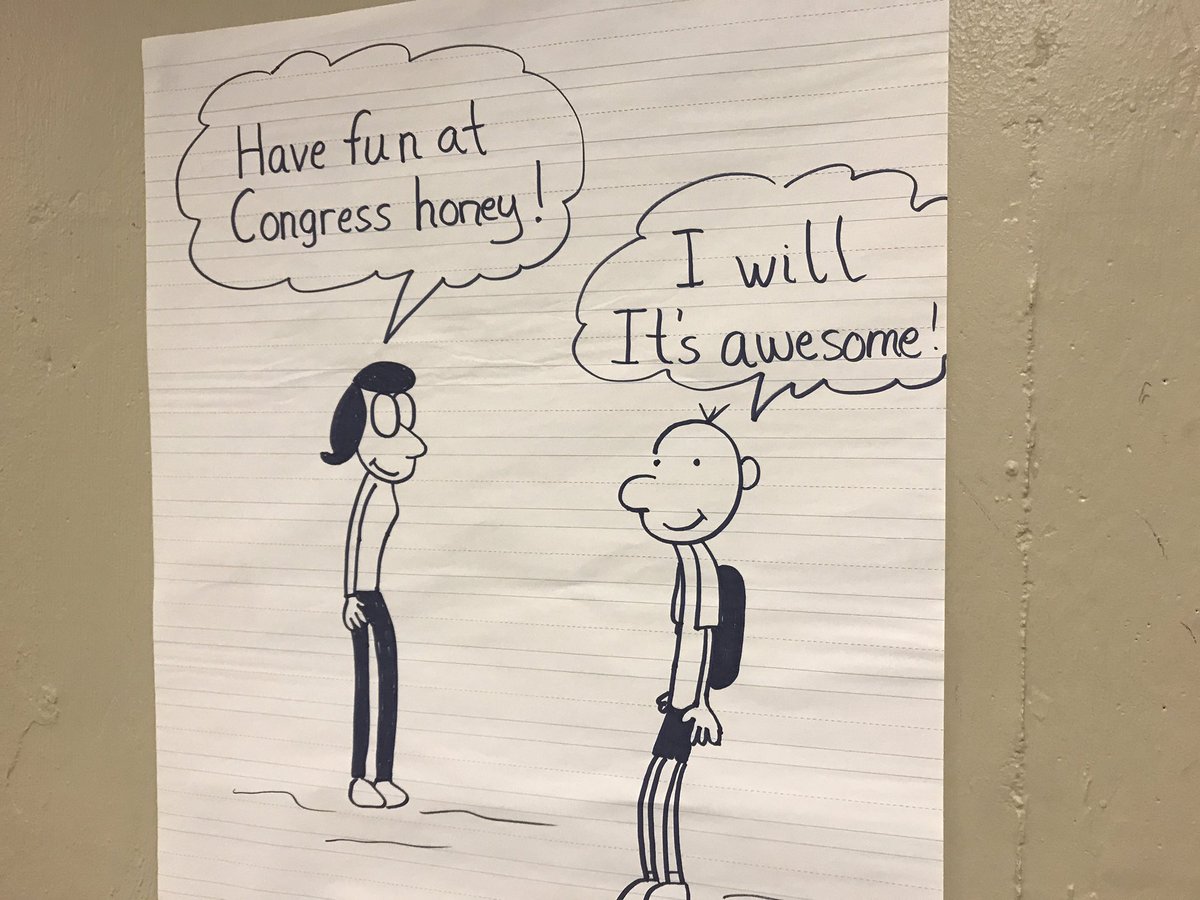 Have fun at
Congress honey!
I will
It's awesome!